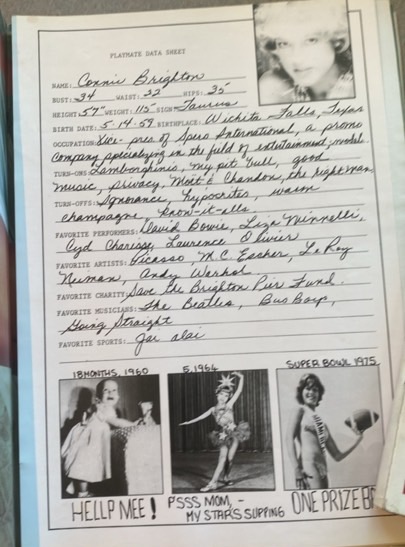 PLAYMATE DATA SHEET
NAME: Connie Brighton
BUST: 34 WAIST: 22 HIPS: 35
HEIGHT: 5'7" WEIGHT: 115 SIGN: Taurus
BIRTH DATE: 5-14-59 BIRTHPLACE: Wichita Falls, Texas
OCCUPATION: Vice-pres of Spero International, a promo
company specializing in the field of entertainment, model.
TURN-ONS: Lamborghinis, my pit bull, good
music, privacy, Moët & Chandon, the right man
TURN-OFFS: Ignorance, hypocrites, warm
champagne, know-it-alls.
FAVORITE PERFORMERS: David Bowie, Liza Minnelli,
Cyd Charisse, Laurence Olivier
FAVORITE ARTISTS: Picasso, M.C. Escher, LeRoy
Neiman, Andy Warhol
FAVORITE CHARITY: Save the Brighton Pier Fund.
FAVORITE MUSICIANS: The Beatles, Bus Boys,
Going Straight
FAVORITE SPORTS: Jai alai
18 MONTHS, 1960 5, 1964 SUPER BOWL 1975
HELLP MEE! PSSS MOM, - ONE PRIZE
MY STAR'S SLIPPING